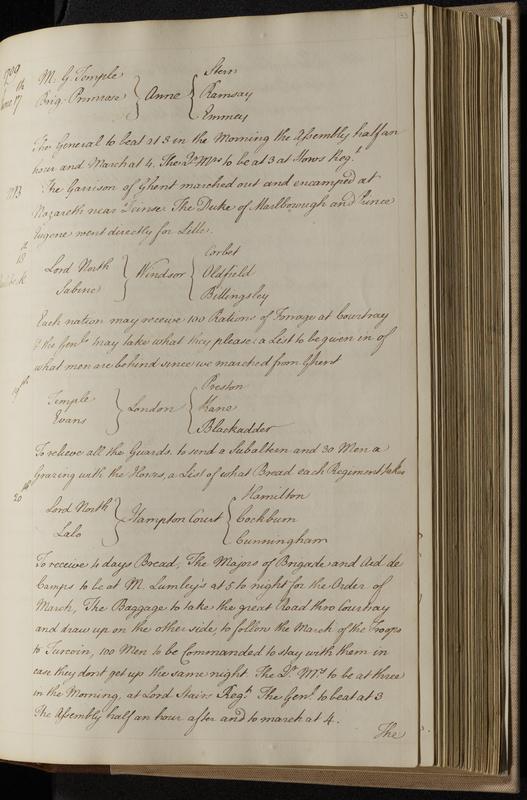 1709
M. G. Temple
Brig. Primrose } Anne { Stern
Ramsay
Emmey
June 17th
The General to beat at 3 in the Morning the Assembly half an
hour and March at 4. The Qr Mrs to be at 3 at Hows Regt
The Garrison of Ghent marched out and encamped at
Nazareth near Deinse. The Duke of Marlborough and Prince
Eugene went directly for Lille.
18
Lord North
Sabine } Windsor { Corbet
Oldfield
Billingsley
Each nation may receive 100 Rations of Forrage at Courtray
& the Genls may take what they please: a List to be given in of
what men are behind since we marched from Ghent
19th
Temple
Evans } London { Preston
Kane
Blackader
To relieve all the Guards. to send a Subaltern and 30 Men a
Grazing with the Horses, a List of what Bread each Regiment takes
20th
Lord North
Lalo } Hampton Court { Hamilton
Cockburn
Cunningham
To receive 4 days Bread, The Majors of Brigade and Aid de
Camps to be at M. Lumley's at 5 to night for the Order of
March, The Baggage to take the great Road thro Courtray
and draw up on the other side, to follow the March of the Troops
to Turcoin, 100 Men to be Commanded to stay with them in
case they dont get up the same night. The Qr Mrs to be at three
in the Morning, at Lord Stairs Regt. The Genl. to beat at 3
The Assembly half an hour after and to march at 4.
The